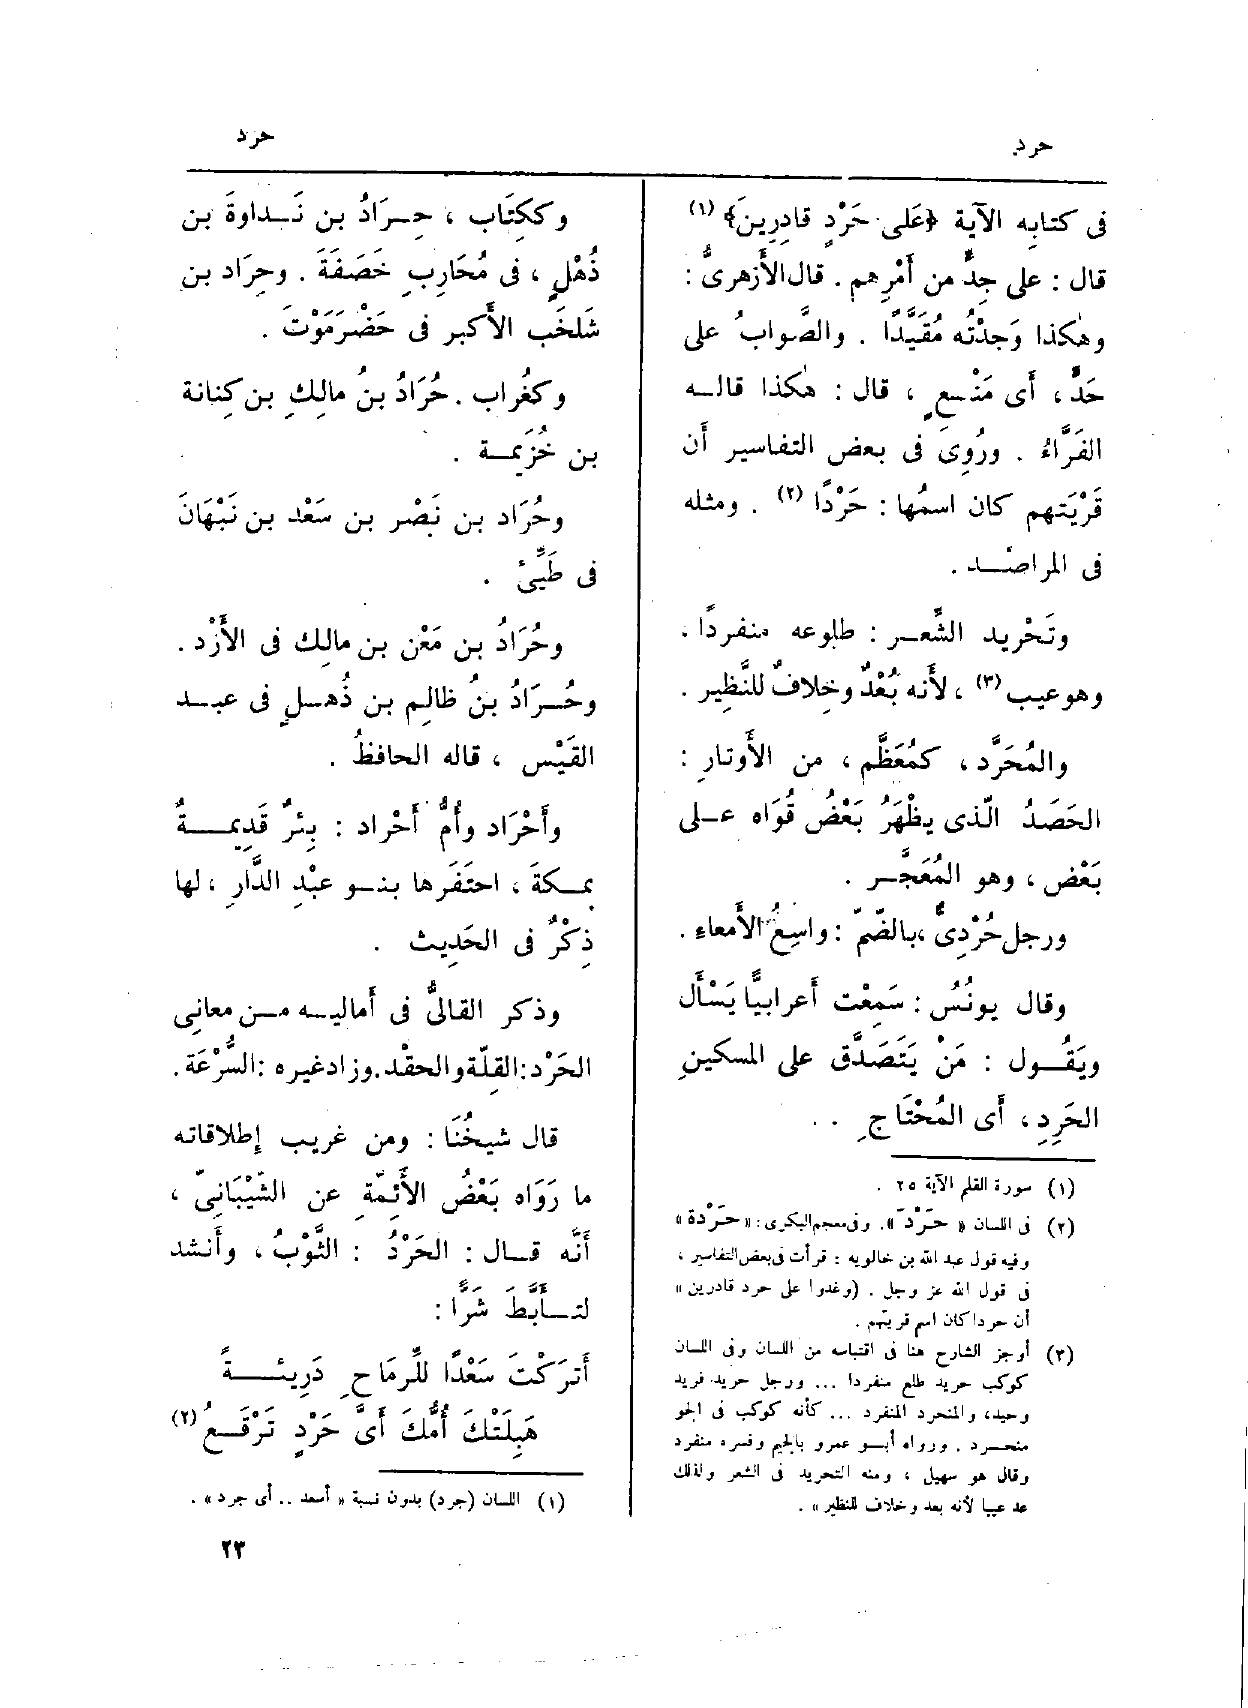 حرد
حرد
فى كتابه الآية ﴿عَلى حَرْدٍ قادِرِينَ﴾ (١)
قال : على جِدٍّ من أَمْرِهم . قال الأَزهرىُّ :
وهٰكذا وَجدْتُه مُقَيَّدًا . والصَّوابُ على
حَدٍّ ، أَى مَنْـعٍ ، قال : هٰكذا قالـه
الفَرَّاءُ . ورُوِىَ فى بعض التفاسير أَن
قَرْيَتهم كان اسمُها : حَرْدًا (٢) . ومثله
فى المراصـد .
وتَحْريد الشَّعـر : طلوعه منفردًا .
وهو عيب (٣) ، لأَنه بُعْدٌ وخِلافٌ للنَّظِير .
والمُحَرَّد ، كمُعَظَّم ، من الأَوتارِ :
الحَصَدُ الّذى يظْهَرُ بَعْضُ قُوَاه عـلى
بَعْض ، وهو المُعَجَّـر .
ورجل حُرْدِىٌّ ، بالضّمّ : واسِعُ الأَمعاءِ .
وقال يونُسُ : سَمِعْت أَعرابيًّا يَسْأَل
ويَقُـول : مَنْ يَتَصَدَّق على المسكينِ
الحَرِدِ ، أَى المُحْتَاجِ . .
(١) سورة القلم الآية ٢٥ .
(٢) فى اللسان « حَرْدَ » . وفى معجم البكرى : « حَرْدة »
وفيه قول عبد الله بن خالويه : قرأت فى بعض التفاسير ،
فى قول الله عز وجل . (وغدوا على حرد قادرين »
أن حردا كان اسم قريتهم .
(٣) أوجز الشارح هنا فى اقتباسه من اللسان وفى اللسان
كوكب حريد طلع منفردا ... ورجل حريد فريد
وحيد، والمنحرد المنفرد ... كأنه كوكب فى الجو
منحـرد . ورواه أبـو عمرو بالجيم وفسره منفرد
وقال هو سهيل ، ومنه التحريد فى الشعر ولذلك
عد عيبا لأنه بعد وخلاف للنظير » .
وككِتَاب ، حِـرَادُ بن نَـداوةَ بن
ذُهْلٍ ، فى مُحَارِبِ خَصَفَةَ . وحِرَاد بن
شَلخَب الأَكبر فى حَضْرَمَوْتَ .
وكغُراب . حُرَادُ بنُ مالِكِ بن كِنانة
بن خُزَيمـة .
وحُرَاد بن نَصْر بن سَعْد بن نَبْهَانَ
فى طَيِّئ .
وحُرَادُ بن مَعْن بن مالِك فى الأَزْد .
وحُـرَادُ بنُ ظالِم بن ذُهـلٍ فى عبـد
القَيْس ، قاله الحافظُ .
وأَحْرَاد وأُمُّ أَحْراد : بِئرٌ قَدِيمـةٌ
بمـكة ، احتَفَرها بنـو عبْدِ الدَّارِ ، لها
ذِكْرٌ فى الحَدِيث .
وذكر القالىُّ فى أَماليـه مـن معانِى
الحَرْد : القِلّة والحقْد . وزاد غيره : السُّرْعَة .
قال شيخُنَا : ومن غريب إِطلاقاته
ما رَوَاه بَعْضُ الأَئِمّةِ عن الشّيْبانىّ ،
أَنَّه قـال : الحَرْدُ : الثَّوْبُ ، وأَنشد
لتـأَبَّطَ شَرًّا :
أَتَرَكْتَ سَعْدًا للرِّمَاحِ دَرِيئـةً
هَبِلَتْكَ أُمُّكَ أَىَّ حَرْدٍ تَرْقَـعُ (٢)
(١) اللسان (جرد) بدون نسبة « أسعد .. أى جرد » .
٢٣